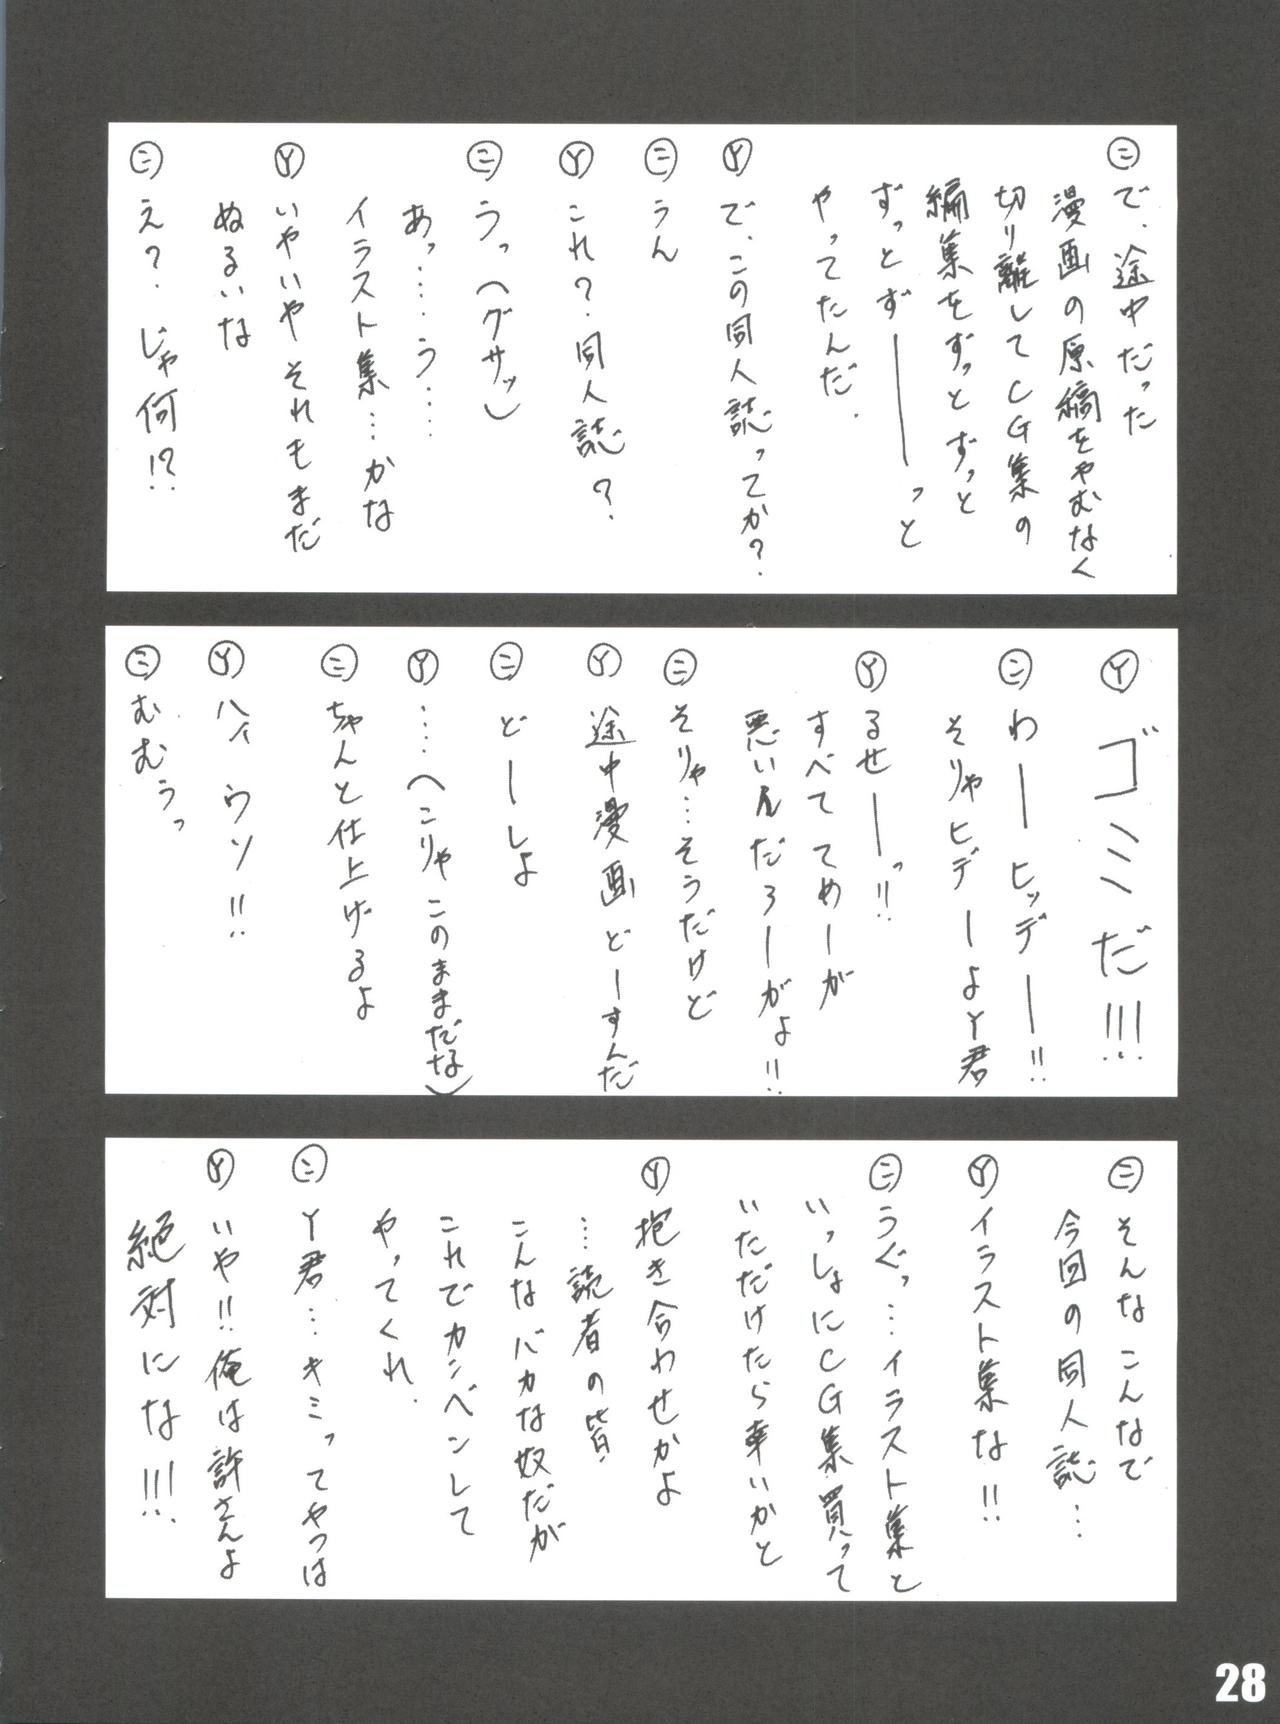 ㊁で、途中だった
漫画の原稿をやむなく
切り離してCG集の
編集をずっとずっと
ずっとずーーーっと
やってたんだ.
Ⓨで、この同人誌ってか?
㊁うん
Ⓨこれ?同人誌?
㊁うっ(グサッ)
あっ……う……
イラスト集…かな
Ⓨいやいやそれもまだ
ぬるいな
㊁え?じゃ何!?
Ⓨゴミだ!!!
㊁わーーヒッデーー!!
そりゃヒデーよY君
Ⓨるせーーっ!!
すべててめーが
悪いんだろーがよ!!
㊁そりゃ…そうだけど
Ⓨ途中漫画どーすんだ
㊁どーしよ
Ⓨ……(こりゃこのままだな)
㊁ちゃんと仕上げるよ
Ⓨハイウソ!!
㊁むむぅっ
㊁そんなこんなで
今回の同人誌…
Ⓨイラスト集な!!
㊁うぐっ…イラスト集と
いっしょにCG集買って
いただけたら幸いかと
Ⓨ抱き合わせかよ
……読者の皆、
こんなバカな奴だが
これでカンベンして
やってくれ.
㊁Y君…キミってやつは
Ⓨいや!!俺は許さんよ
絶対にな!!!
28